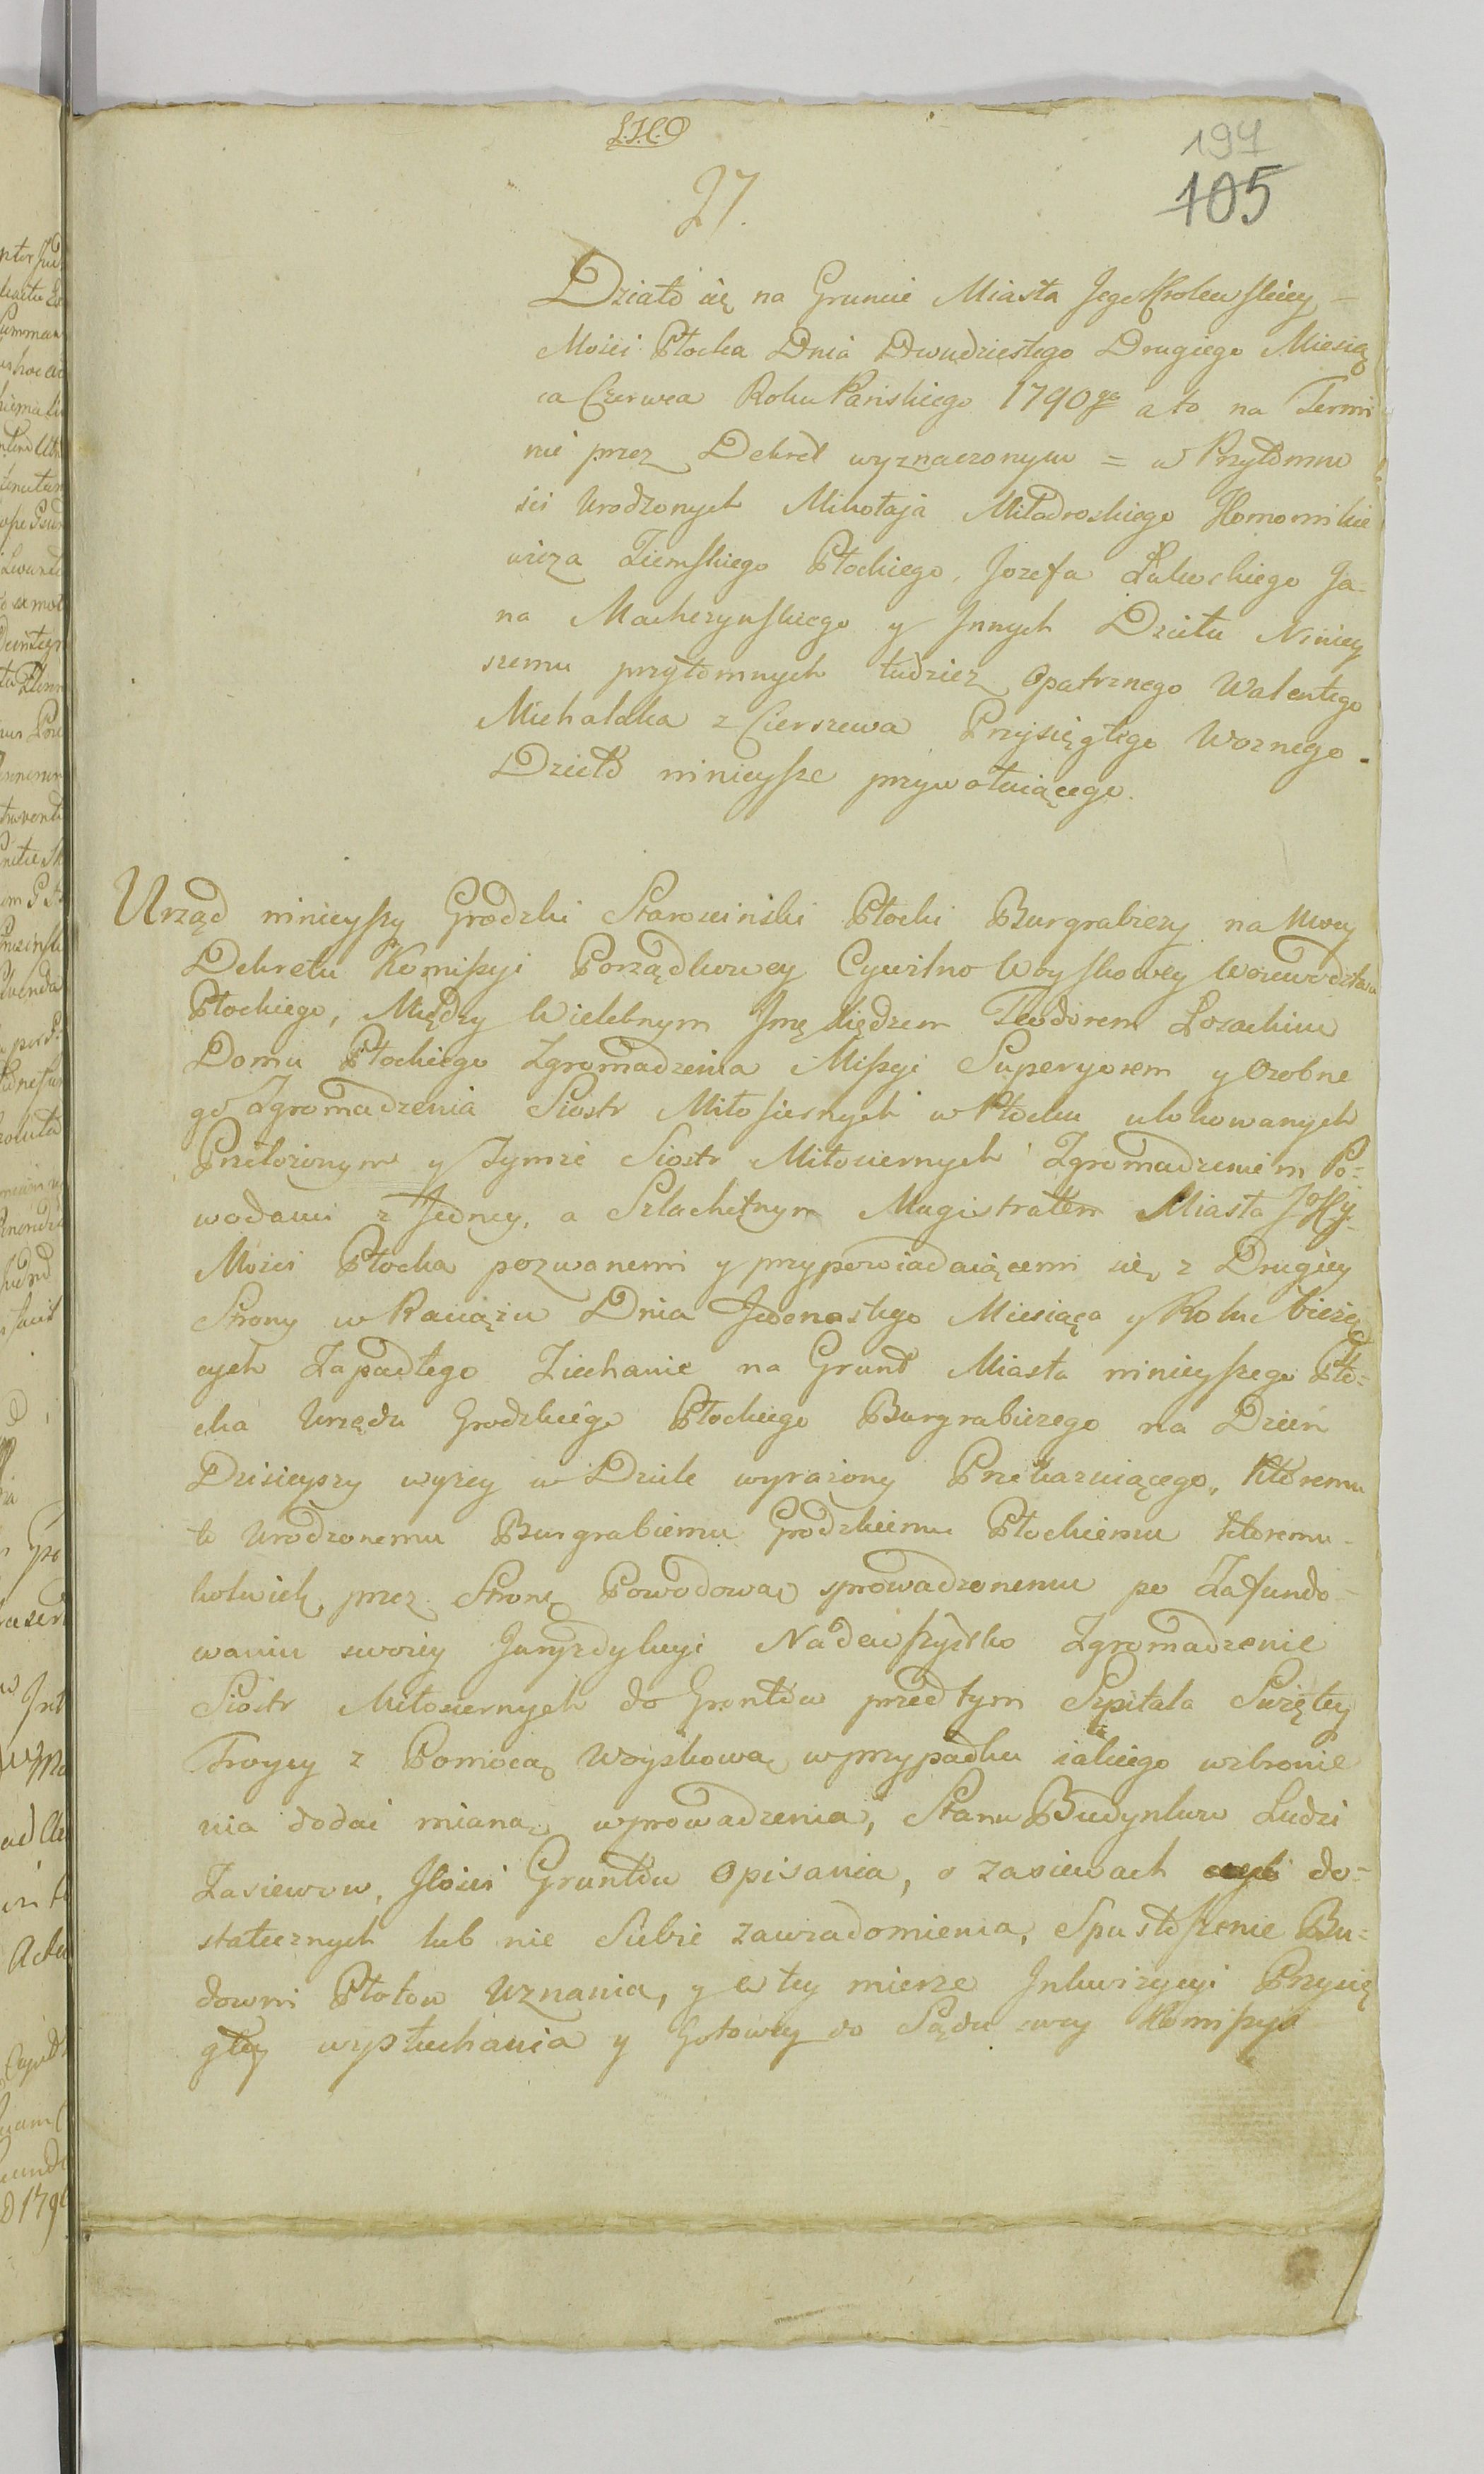 197
105
27.
Działo się na Gruncie Miasta Jego Krolewskiey =
Mości Płocka Dnia Dwudziestego Drugiego Miesią
ca Czerwca Roku Pańskiego 1790go a to na Termi
nie przez Dekret wyznaczonym = w Przytomno
ści Urodzonych Mikołaja Miładroskiego Komornikie
wicza Ziemskiego Płockiego, Jozefa Ja-
na Macherzynskiego y Innych Dziełu Niniey
szemu przytomnych tudziez Opatrznego Walentego
Michalaka z Cierszewa Przysięgłego Woznego.
Dzieło ninieysze przywołuiącego.
Urząd ninieyszy Grodzki Starosciński Płocki Burgrabiezy na Mocy
Dekretu Kommissyi Porządkowey Cywilno Woyskowey Wojewodztwa
Płockiego, Między Wielebnym Jmę Xiędzem Teodorem
Domu Płockiego Zgromadzenia Missyi Superyorem y Ozobne
go Zgromadzenia Siostr Miłosiernych w Płocku ulokowanych
Przełozonym y Tymze Siostr Miłosiernych Zgromadzeniem Po=
wodami z Jedney, a Szlachetnym Magistratem Miasta JKy
Mości Płocka pozwanemi y przypowiadaiącemi się z Drugiey
Strony w Raciązu Dnia Jedenastego Miesiąca y Roku bieżą
cych Zapadłego Ziechanie na Grunt Miasta ninieyszego Pło=
cka Urzędu Grodzkiego Płockiego Burgrabiezego na Dzień
Dzisieyszy wyzey w Dziele wyrażony Przekazuiącego, Któremu
to Urodzonemu Burgrabiemu Grodzkiemu Płockiemu ktoremu-
kolwiek, przez Stronę Powodową sprowadzonemu po Zafundo-
waniu swoiey Juryzdykcyi Nadewszystko Zgromadzenie
Siostr Miłosiernych do Grontów przedtym Szpitala Swiętey
Troycy z Pomocą Woyskową w przypadku iakiego wzbronie
nia dodać mianą wprowadzenia, Stanu Budynkow Ludzi
Zasiewow, Ilości Gruntów Opisania, o zasiewach do=
statecznych lub nie Siebie zawiadomienia, Spustoszenie Bu=
downi Płotow Uznania, y w tey mierze Inkwizycyi Przysię
głey wysłuchania y Gotowey do Sądu swey Komissyi